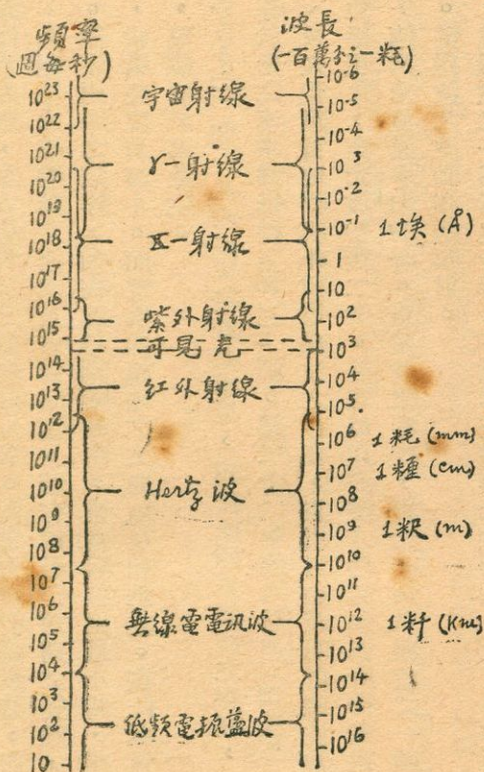 頻率
(週每秒)
波長
(一百萬分之一粍)
10²³
10²²
10²¹
10²⁰
10¹⁹
10¹⁸
10¹⁷
10¹⁶
10¹⁵
10¹⁴
10¹³
10¹²
10¹¹
10¹⁰
10⁹
10⁸
10⁷
10⁶
10⁵
10⁴
10³
10²
10
宇宙射線
γ—射線
X—射線
紫外射線
可見光
紅外射線
Hertz 波
無線電電訊波
低頻電振盪波
10⁻⁶
10⁻⁵
10⁻⁴
10³
10⁻²
10⁻¹
1
10
10²
10³
10⁴
10⁵
10⁶
10⁷
10⁸
10⁹
10¹⁰
10¹¹
10¹²
10¹³
10¹⁴
10¹⁵
10¹⁶
1埃 (Å)
1粍 (mm)
1糎 (cm)
1米 (m)
1粁 (Km)